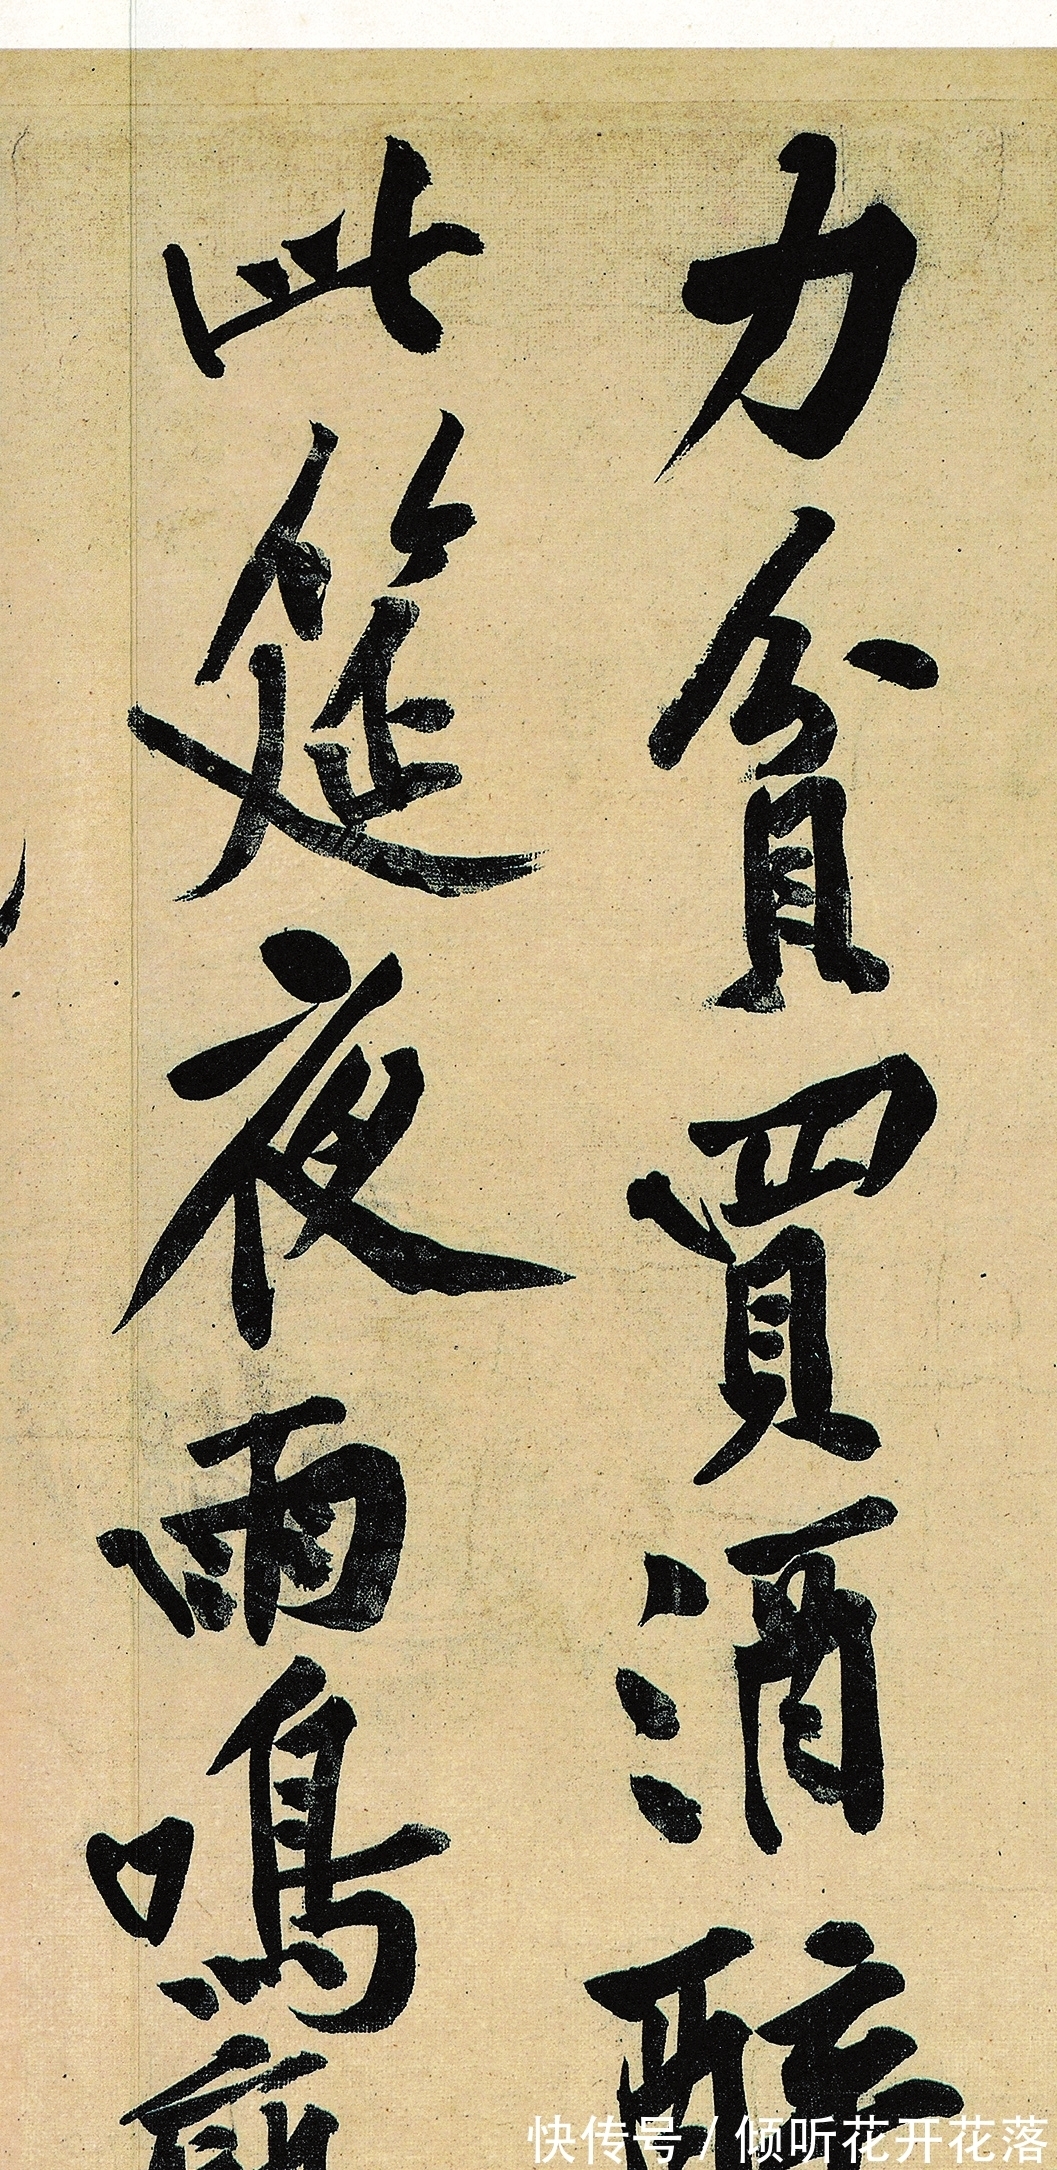 力貧買酒醉
此筵夜雨鳴廊
快传号/倾听花开花落